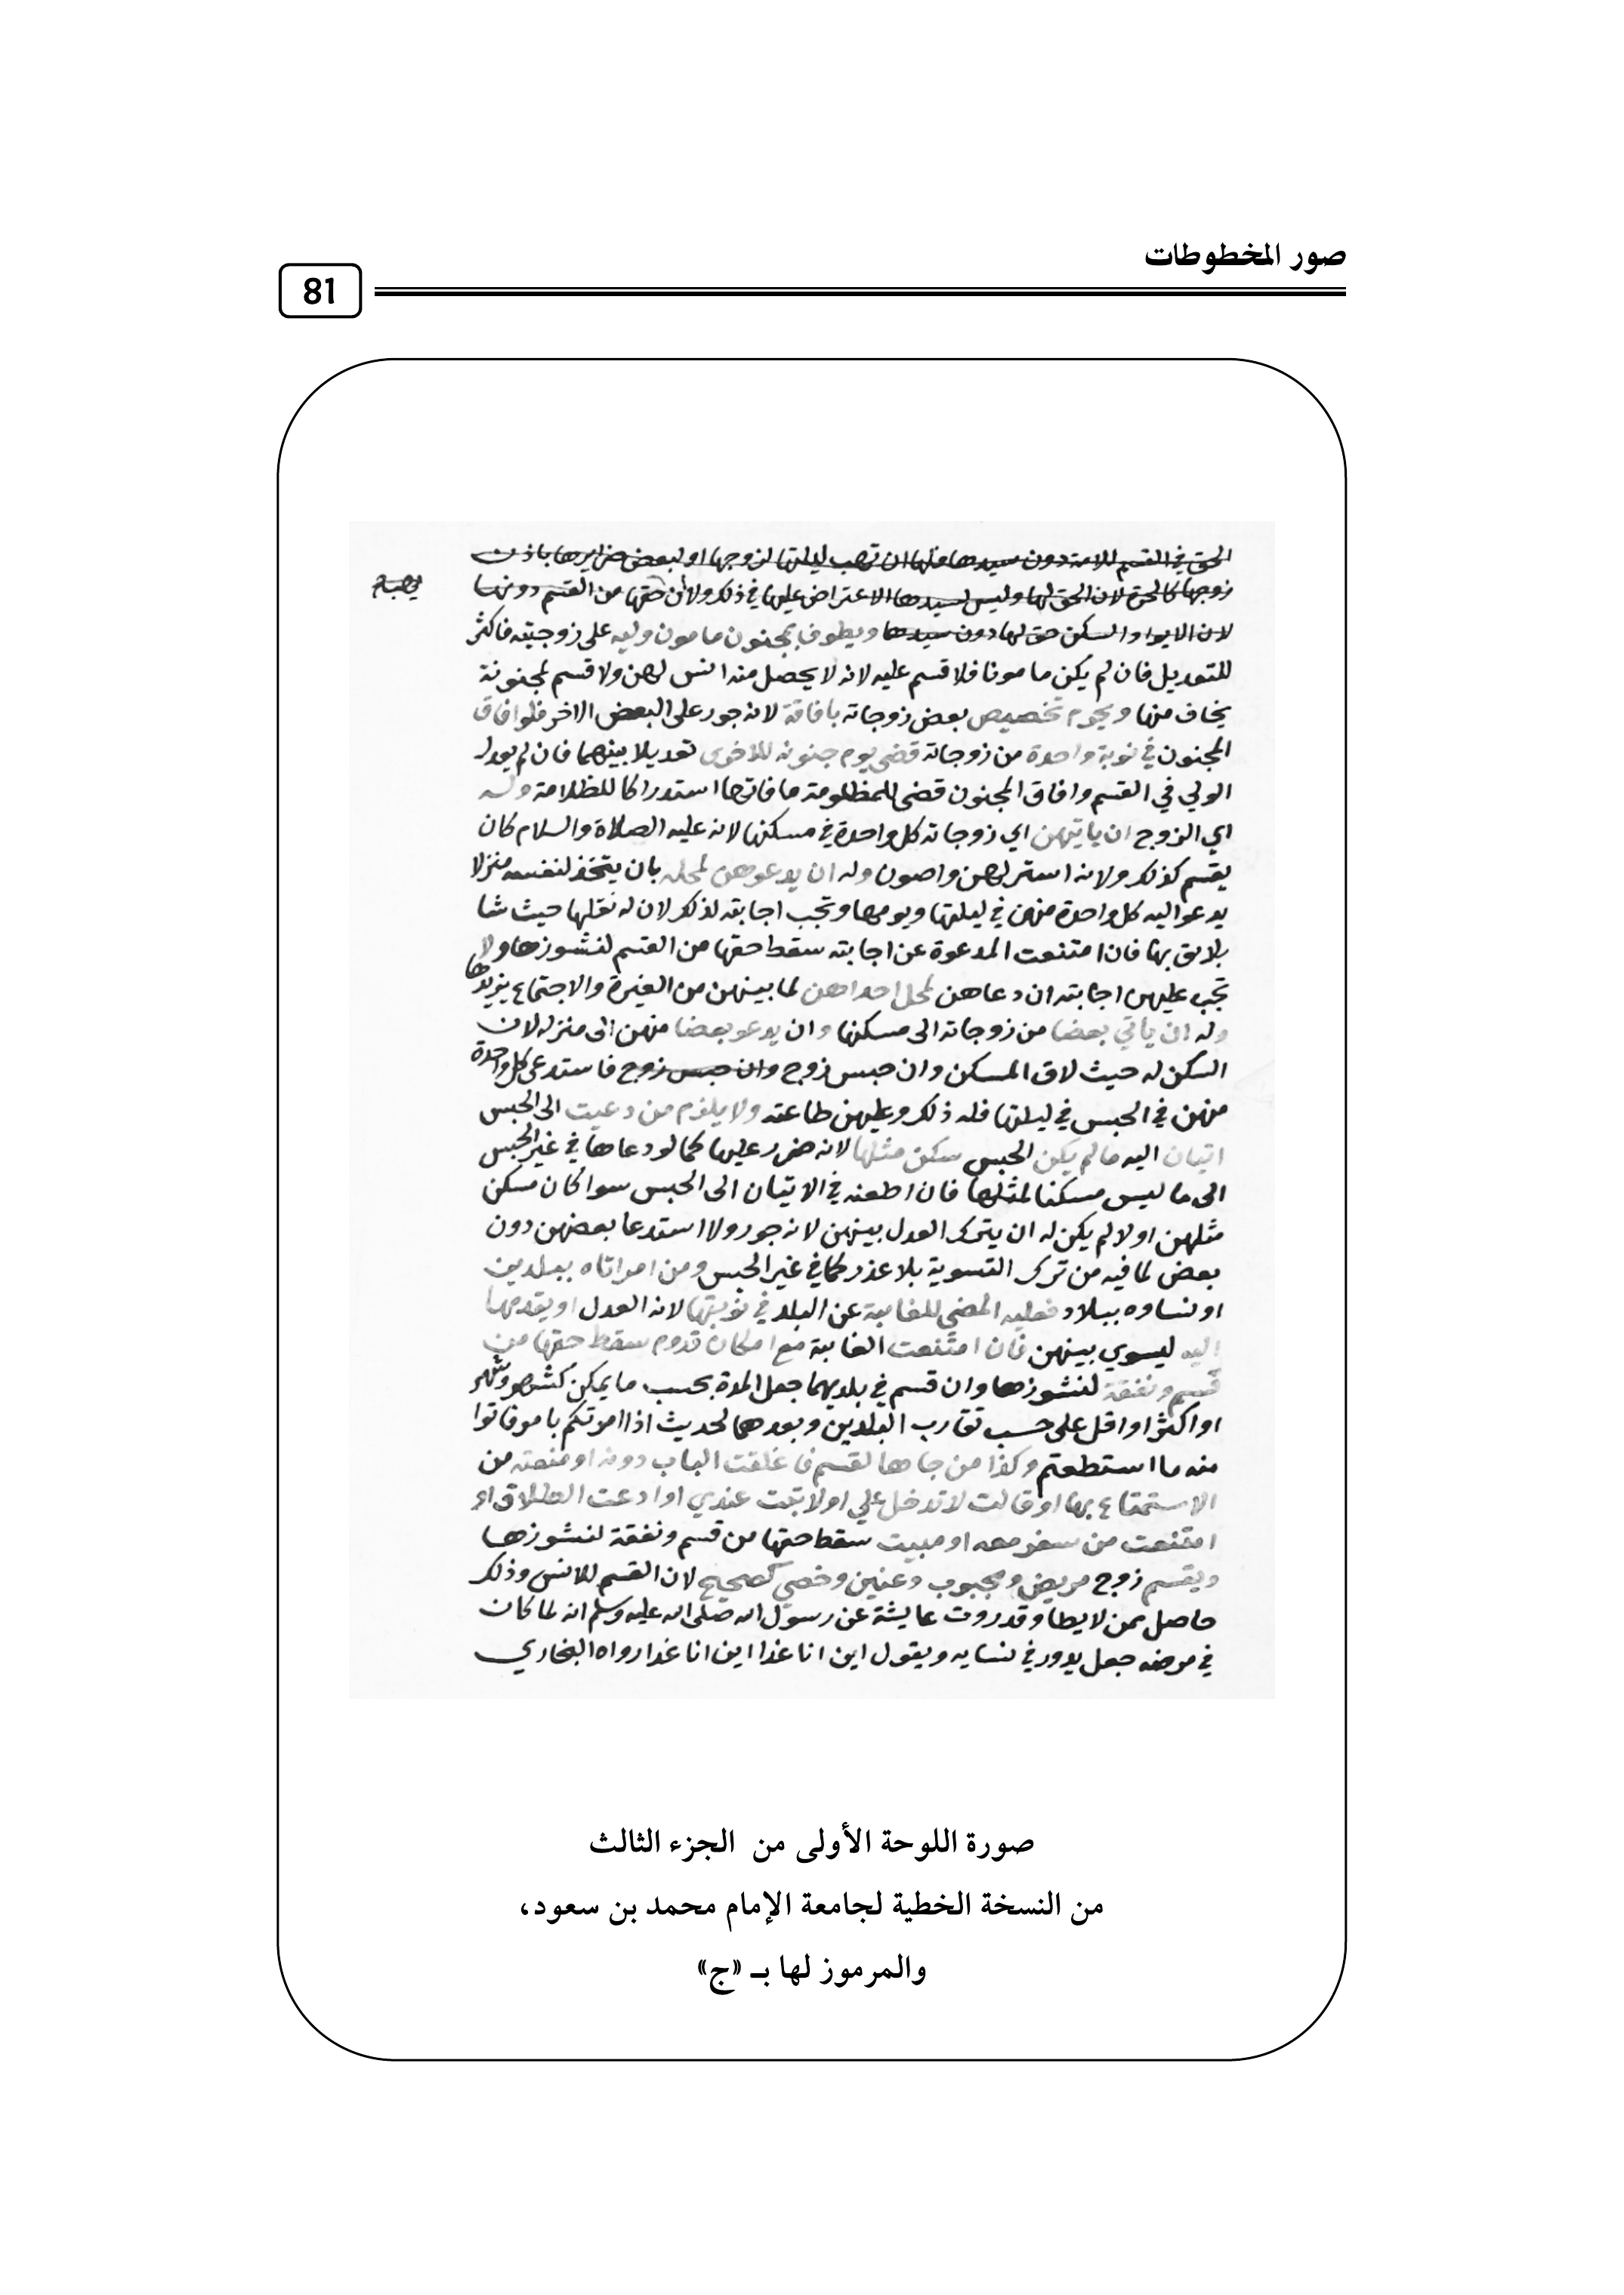 صور المخطوطات
81
الحق في القسم للامة دون سيدها فلها ان تهب ليلتها لزوجها او لبعض ضرايرها باذن
زوجها كالحرة لان الحق لها وليس لسيدها الاعتراض عليها في ذلك ولا من القسم دونها
لان الايوا والسكن حق لها دون سيدها ويطوف بمجنون مامون وليه على زوجتيه فاكثر
للتعديل فان لم يكن مامونا فلا قسم عليه لانه لا يحصل منه انس لهن ولا قسم لمجنونة
يخاف منها ويحرم تخصيص بعض زوجاته بافاقة لانه جور على البعض الاخر فلو افاق
المجنون في نوبة واحدة من زوجاته قضى يوم جنونه للاخرى تعديلا بينهما فان لم يعدل
الولي في القسم وافاق المجنون قضى للمظلومة ما فاتها استدراكا للظلامة وله
اي الزوج ان ياتيهن اي زوجاته كل واحدة في مسكنها لانه عليه الصلاة والسلام كان
يقسم كذلك ولانه استر لهن واصون وله ان يدعوهن لمحله بان يتخذ لنفسه منزلا
يدعو اليه كل واحدة منهن في ليلتها ويومها وتجب اجابته لذلك لان له نقلها حيث شا
بلايق بها فان امتنعت المدعوة عن اجابته سقط حقها من القسم لنشوزها ولا
تجب عليهن اجابته ان دعاهن لمحل احداهن لما بينهن من الغيرة والاجتماع يزيدها
وله ان ياتي بعضا من زوجاته الى مسكنها وان يدعو بعضا منهن الى منزله لان
السكن له حيث لاق المسكن وان حبس زوج وان حبس زوج فاستدعى كل واحدة
منهن في الحبس في ليلتها فله ذلك وعليهن طاعته ولا يلزم من دعيت الى الحبس
اتيان اليه ما لم يكن الحبس سكن مثلها لانه ضرر عليها كما لو دعاها في غير الحبس
الى ما ليس مسكنا لمثلها فان اطعنه في الاتيان الى الحبس سوا كان مسكن
مثلهن او لا لم يكن له ان يترك العدل بينهن لانه جور ولا استدعا بعضهن دون
بعض لما فيه من ترك التسوية بلا عذر كما في غير الحبس ومن امراتاه ببلدين
او نساوه ببلاد فعليه المضي للغايبة عن البلد في نوبتها لانه العدل او يقدمها
اليه ليسوي بينهن فان امتنعت الغايبة مع امكان قدوم سقط حقها من
قسم ونفقة لنشوزها وان قسم في بلديهما جعل المدة بحسب ما يمكن كشهر وشهر
او اكثر او اقل على حسب تقارب البلدين وبعدهما لحديث اذا امرتكم بامر فاتوا
منه ما استطعتم وكذا من جاها لقسم فاغلقت الباب دونه او منعته من
الاستمتاع بها او قالت لا تدخل علي او لا تبت عندي او ادعت الطلاق او
امتنعت من سفر معه او مبيت سقط حقها من قسم ونفقة لنشوزها
ويقسم زوج مريض ومجبوب وعنين وخصي كصحيح لان القسم للانس وذلك
حاصل ممن لا يطا وقد روت عايشة عن رسول الله صلى الله عليه وسلم انه لما كان
في مرضه جعل يدور في نسايه ويقول اين انا غدا اين انا غدا رواه البخاري
صورة اللوحة الأولى من الجزء الثالث
من النسخة الخطية لجامعة الإمام محمد بن سعود،
والمرموز لها بـ «ج»